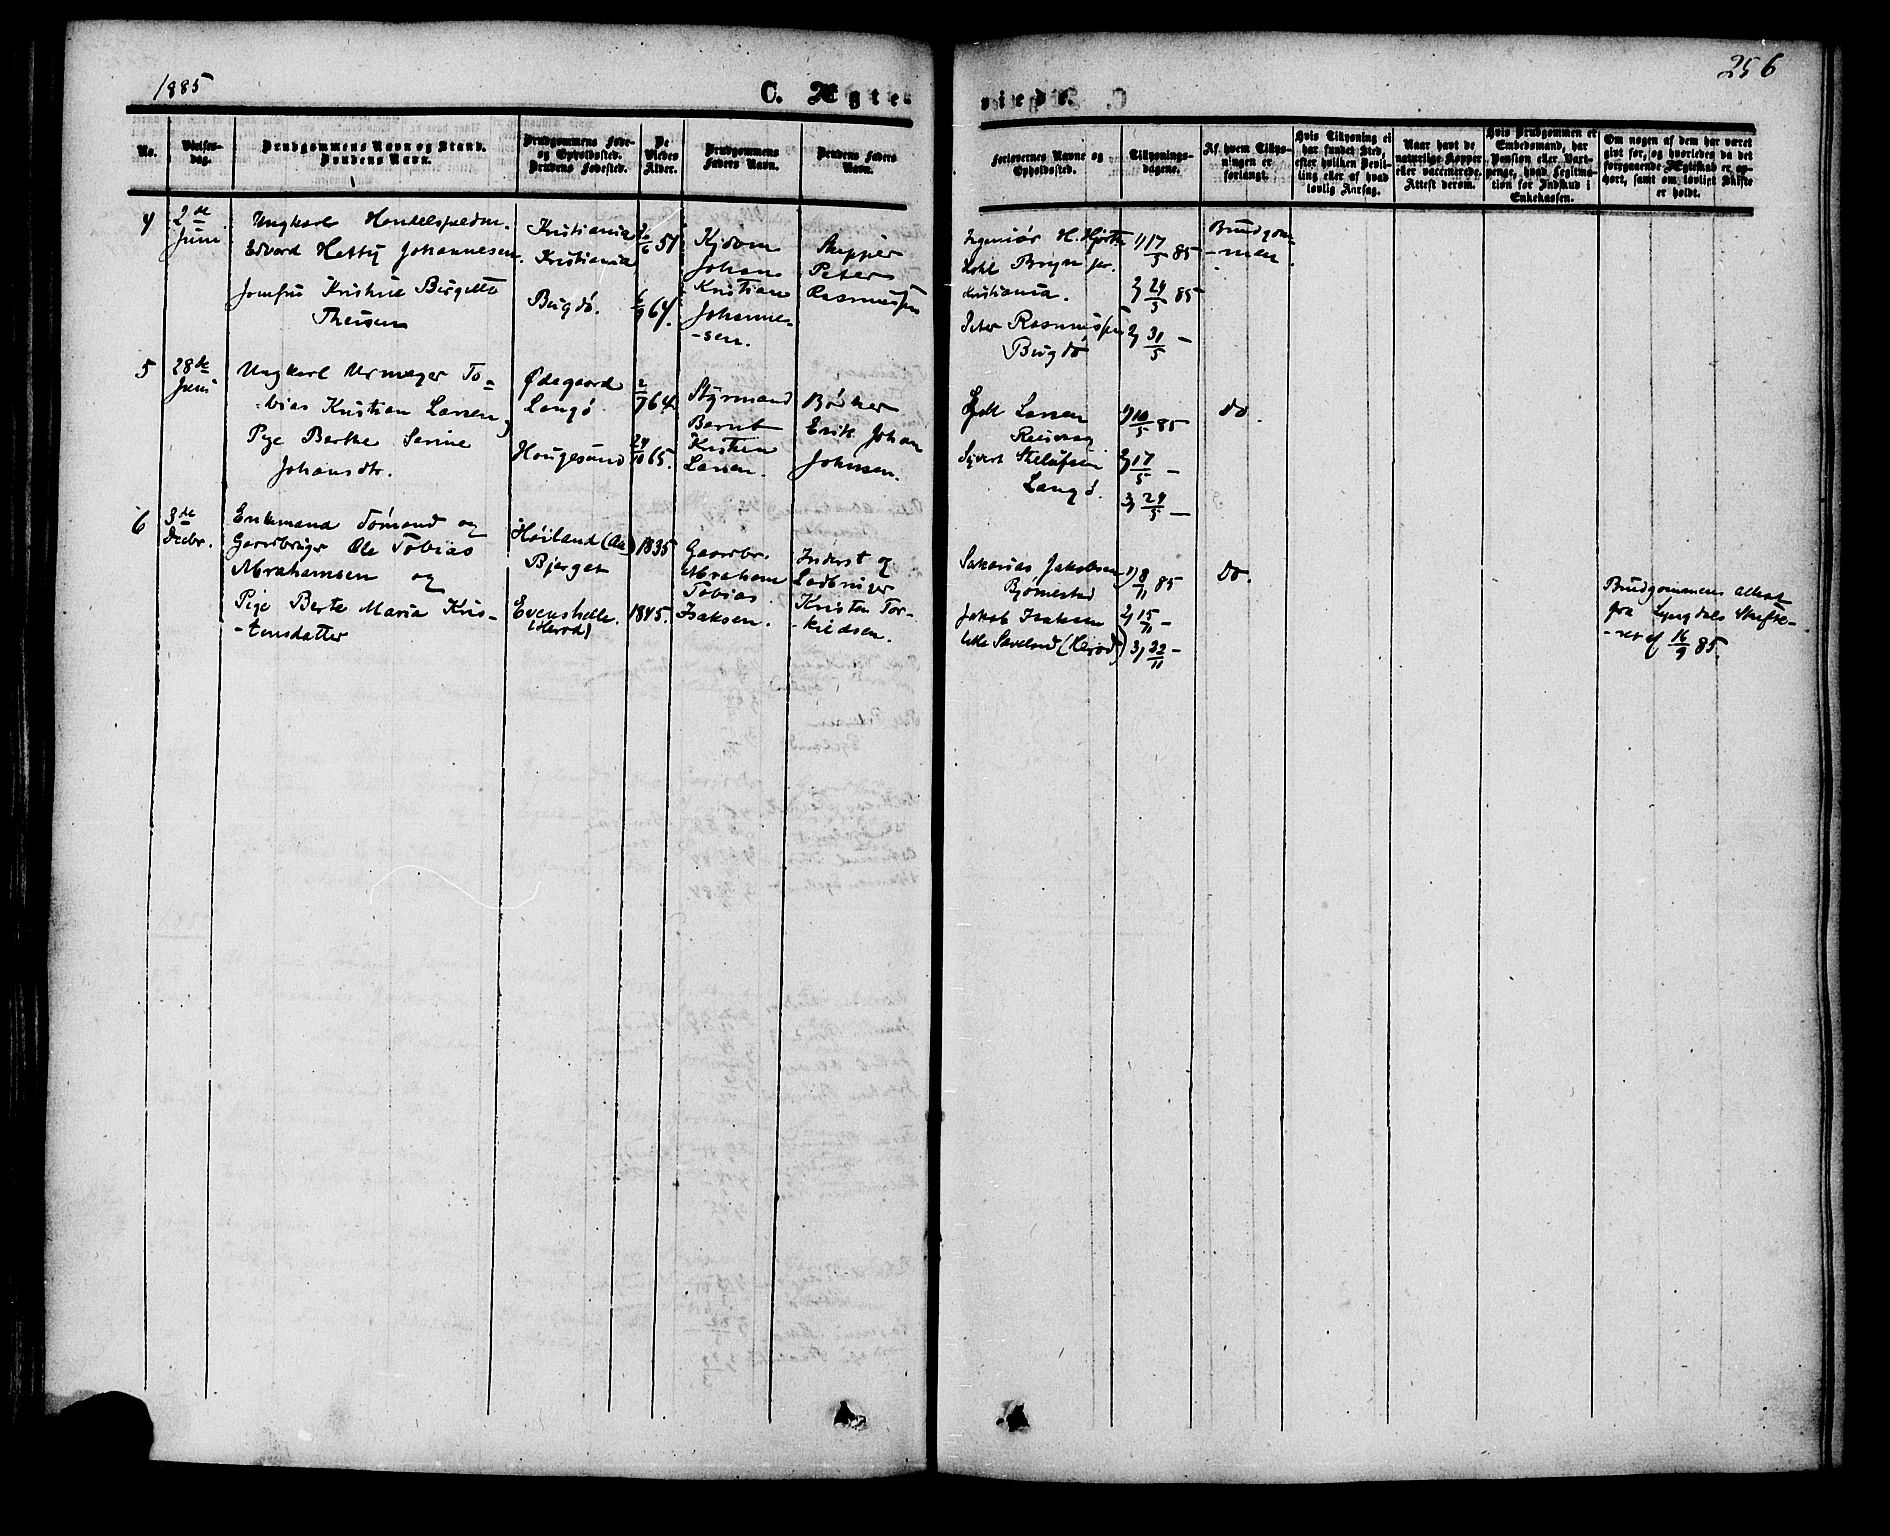 1885
256
C. Ægte-
viede.
No.
Vielses-
dag.
Brudgommens Navn og Stand.
Brudens Navn.
Brudgommens Føde-
og Opholdssted.
Brudens Fødested.
De
Viedes
Alder.
Brudgommens
Faders Navn.
Brudens Faders
Navn.
Forlovernes Navne og
Opholdssted.
Tillysnings-
dagene.
Af hvem Tillys-
ningen er
forlangt.
Hvis Tillysning ei
har fundet Sted,
efter hvilken Bevil-
ling eller af hvad
lovlig Aarsag.
Naar havt de
naturlige Kopper
eller vaccinerede.
Attest derom.
Hvis Brudgommen er
Embedsmand, har
Pension eller Vart-
penge, hvad Legitima-
tion for Indskud i
Enkekassen.
Om nogen af dem har været
gift før, og hvorledes da det
foregaaende Ægteskab er op-
hørt, samt om lovligt Skifte
er holdt.
4
2de
Juni
Ungkarl Handelsfuldm.
Edvard Johannesen.
Jomfru Kristine Birgitte
Theisen
Kristiania
Kristiania
Bugdø.
6/9 64.
Johan
Kristian
Johanne-
-sen.
Skipper
Peter
Rasmussen
Ingeniør H.
Bryn jr.
Kristiania.
Peter Rasmussen
Bugdø
1) 17/5 85
2) 24/5 85
3) 31/5 —
Brudgom-
-men.
5
28de
Juni
Ungkarl Urmager To-
-bias Kristian Larsen,
Pige Berthe Serine
Johansdtr.
Ødegaard
Langø
Hougesund
2/7 64.
24/10 65.
Styrmand
Bernt
Kristian
Larsen.
Bødker
Erik Johan
Johnsen.
Larsen
Sivert
Langø.
1) 10/5 85
2) 17/5 —
3) 24/5 —
do.
6
3de
Decbr.
Enkemand Sømand og
Gaardbruger Ole Tobias
Abrahamsen og
Pige Berte Maria Kris-
-tensdatter
Høiland (Aa)
Bjerget
Evenshelle.
(Herod)
1835
1845.
Gaardbr.
Abraham
Tobias
Isaksen.
Inderst og
Kristen Tor-
-kildsen.
Sakarias Jakobsen
Bjørnestad
Jakob Isaksen
Lille Sævland (Herod)
1) 8/11 85
2) 15/11 —
3) 22/11 —
do.
Brudgommens attest
fra Lyngdals Skifte-
-ret af 16/9 85.